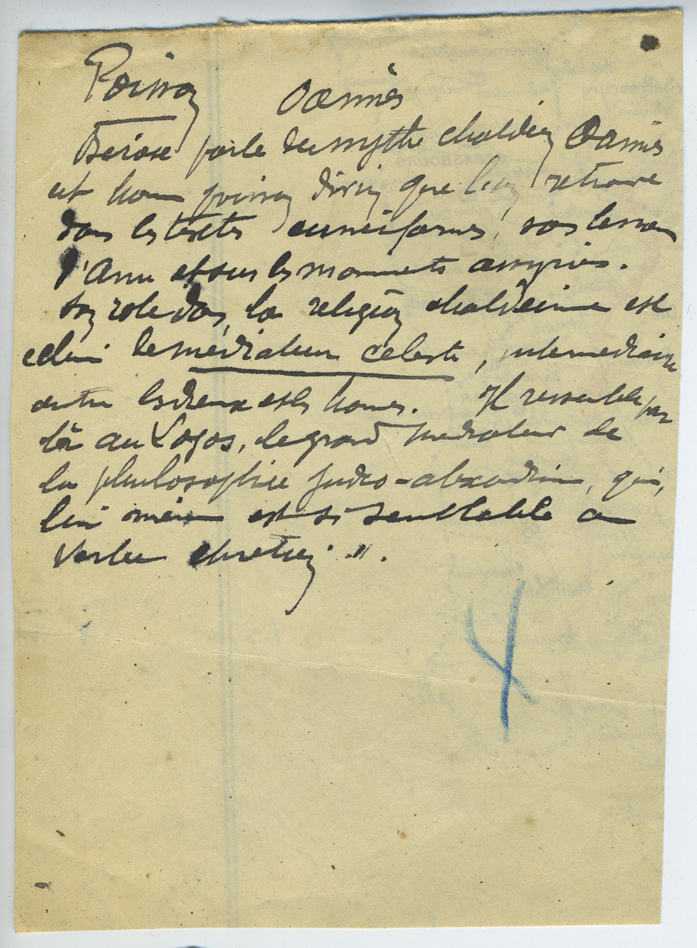 Poisson Oannès
Berose parle du mythe chaldéen Oannès
et homme poisson divin que l'on retrouve
dans les textes cuneiformes, sous le nom
d'Anu et sur les monuments assyriens.
Son role dans la religion chaldéenne est
celui de médiateur celeste, intermediaire
entre les dieux et les hommes. Il ressemble par
là au Logos, le grand mediateur de
la philosophie judeo-alexandrine, qui,
lui même est si semblable au
Verbe chretien ".
4